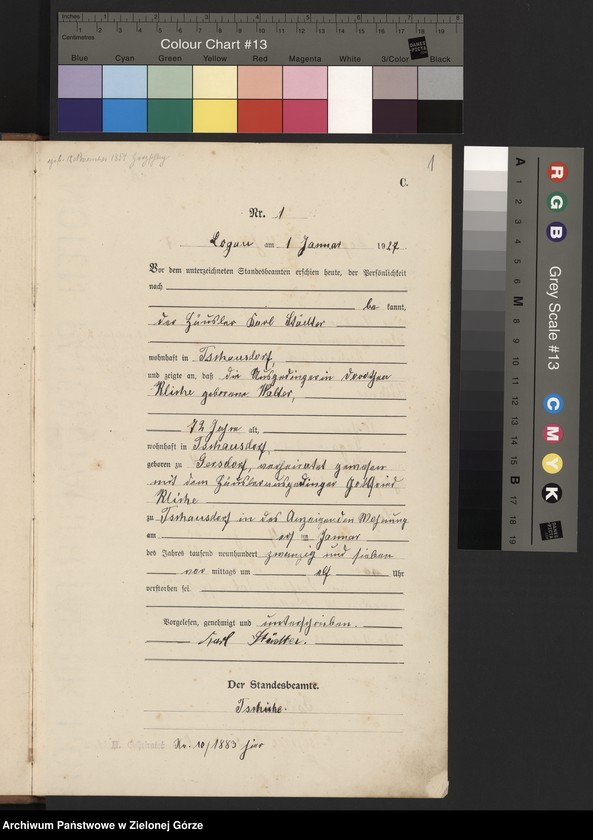 Inches 1 2 3 4 5 6 7 8
Centimetres 1 2 3 4 5 6 7 8 9 10 11 12 13 14 15 16 17 18 19
Colour Chart #13
DANES PICTA
Blue Cyan Green Yellow Red Magenta White 3/Color Black
1
C.
Nr. 1
Logau am 1 Januar 1927
Vor dem unterzeichneten Standesbeamten erschien heute, der Persönlichkeit
nach
be kannt,
der Häusler Karl Städter
wohnhaft in Tschausdorf,
und zeigte an, daß die Ausgedingerin Dorothea
Klishe geborene Walter,
72 Jahre alt,
wohnhaft in Tschausdorf,
geboren zu Gersdorf, verheiratet gewesen
mit dem Häuslerausgedinger Gottfried
Klishe
zu Tschausdorf in des Anzeigenden Wohnung
am Januar
des Jahres tausend neunhundert zwanzig und sieben
vor mittags um elf Uhr
verstorben sei.
Vorgelesen, genehmigt und unterschrieben.
Karl Städter.
Der Standesbeamte.
Nr. 10/1883 hier
A 1 2 3 4 5 6 M 8 9 10 11 12 13 14 15 B 17 18 19
R G B
Grey Scale #13
C M Y K
Archiwum Państwowe w Zielonej Górze